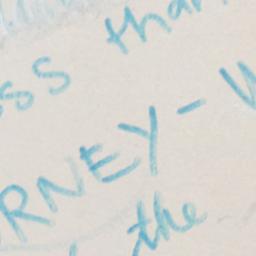 ss than
RNEY -
the